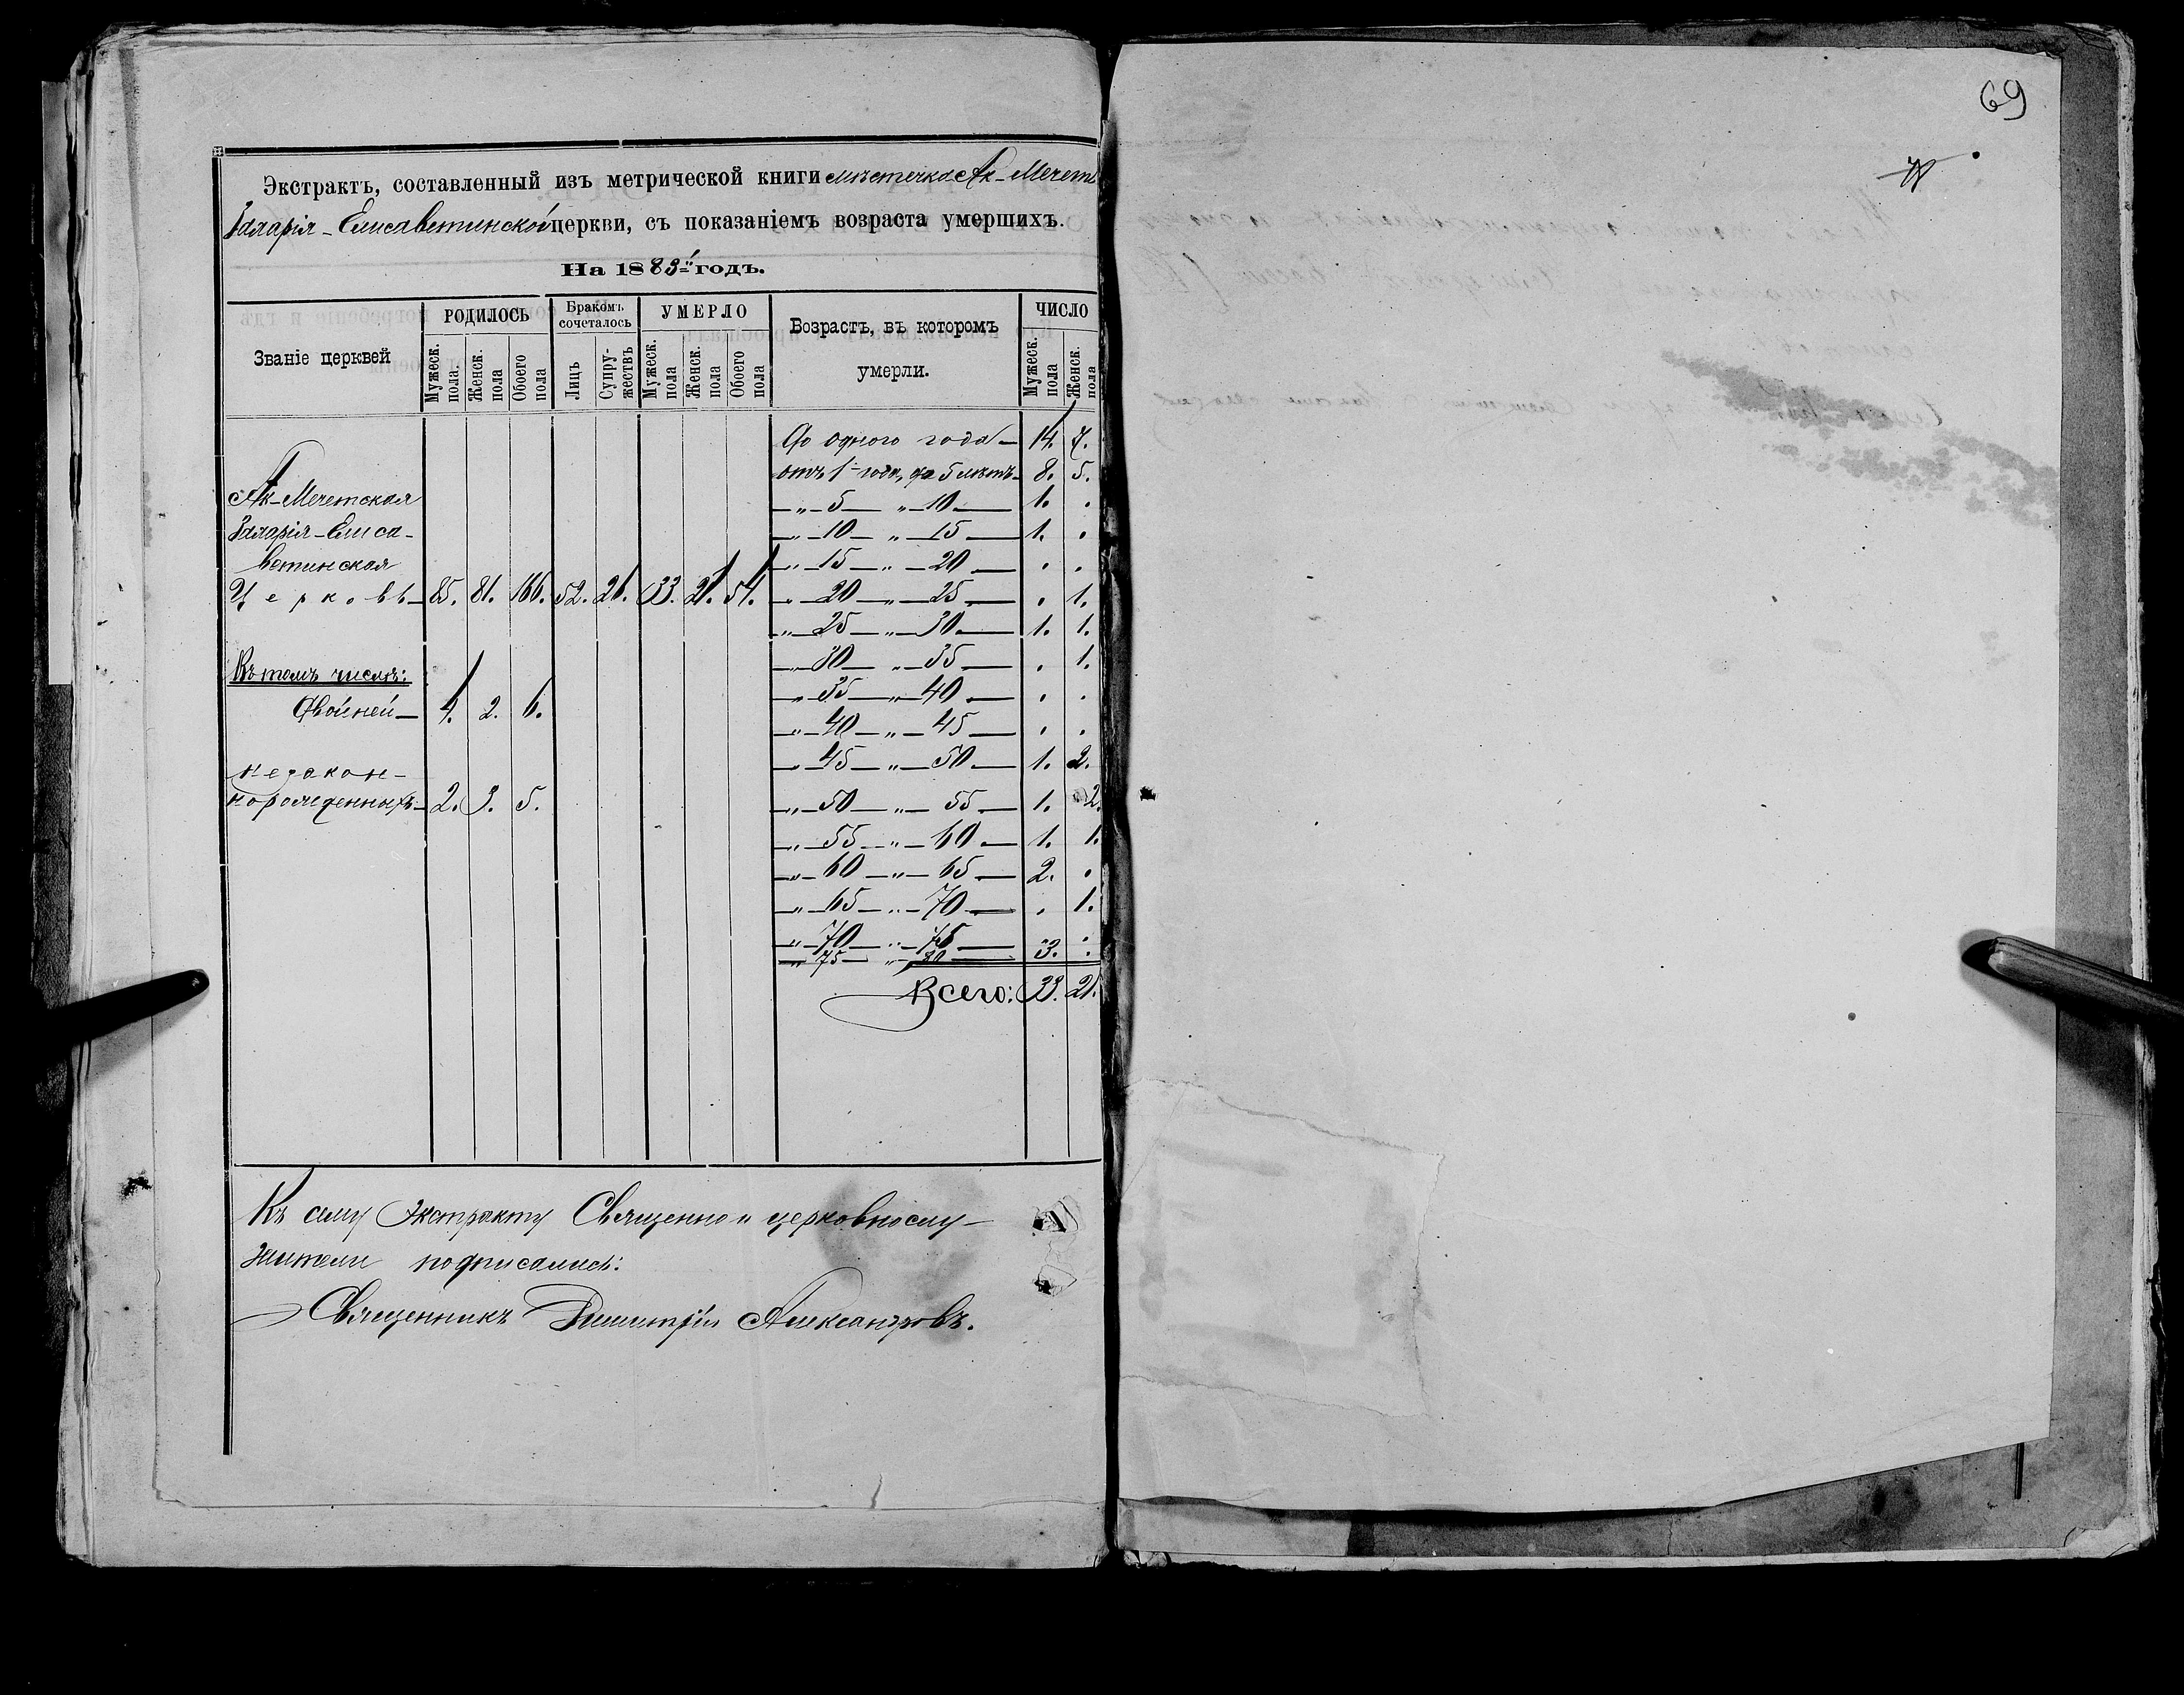 Экстрактъ, составленный изъ метрической книги мѣстечка Ак-Мечеть
Захарія-Елисаветинской церкви, съ показаніемъ возраста умершихъ.
На 1883-й годъ.
Званіе церквей | РОДИЛОСЬ | Бракомъ сочеталось | УМЕРЛО | Возрастъ, въ которомъ умерли. | ЧИСЛО
Мужеск. пола. | Женск. пола | Обоего пола | Лицъ | Супружествъ | Мужеск. пола | Женск. пола | Обоего пола | Мужеск. пола | Женск. пола
До одного года — 14. 7.
отъ 1-го года, до 5 лѣтъ — 8. 5.
Ак-Мечетская
„ — 5 — „ — 10 — 1. .
Захарія-Елиса-
„ — 10 — „ — 15 — 1. .
ветинская
„ — 15 — „ — 20 — . .
Церковь — 85. 81. 166. 52. 26. 33. 21. 54.
„ — 20 — „ — 25 — . 1.
„ — 25 — „ — 30 — 1. 1.
Въ томъ числѣ:
„ — 30 — „ — 35 — . 1.
„ — 35 — „ — 40 — . .
Двойней — 4. 2. 6.
„ — 40 — „ — 45 — . .
„ — 45 — „ — 50 — 1. 2.
незакон-
норожденныхъ — 2. 3. 5.
„ — 50 — „ — 55 — 1. 2.
„ — 55 — „ — 60 — 1. 1.
„ — 60 — „ — 65 — 2. .
„ — 65 — „ — 70 — . 1.
„ — 70 — „ — 75 — . .
„ — 75 — „ — 80 — 3. .
Всего: 33. 21.
Къ сему Экстракту Священно и церковнослу-
жители подписались:
Священникъ Димитрій Александровъ.
69